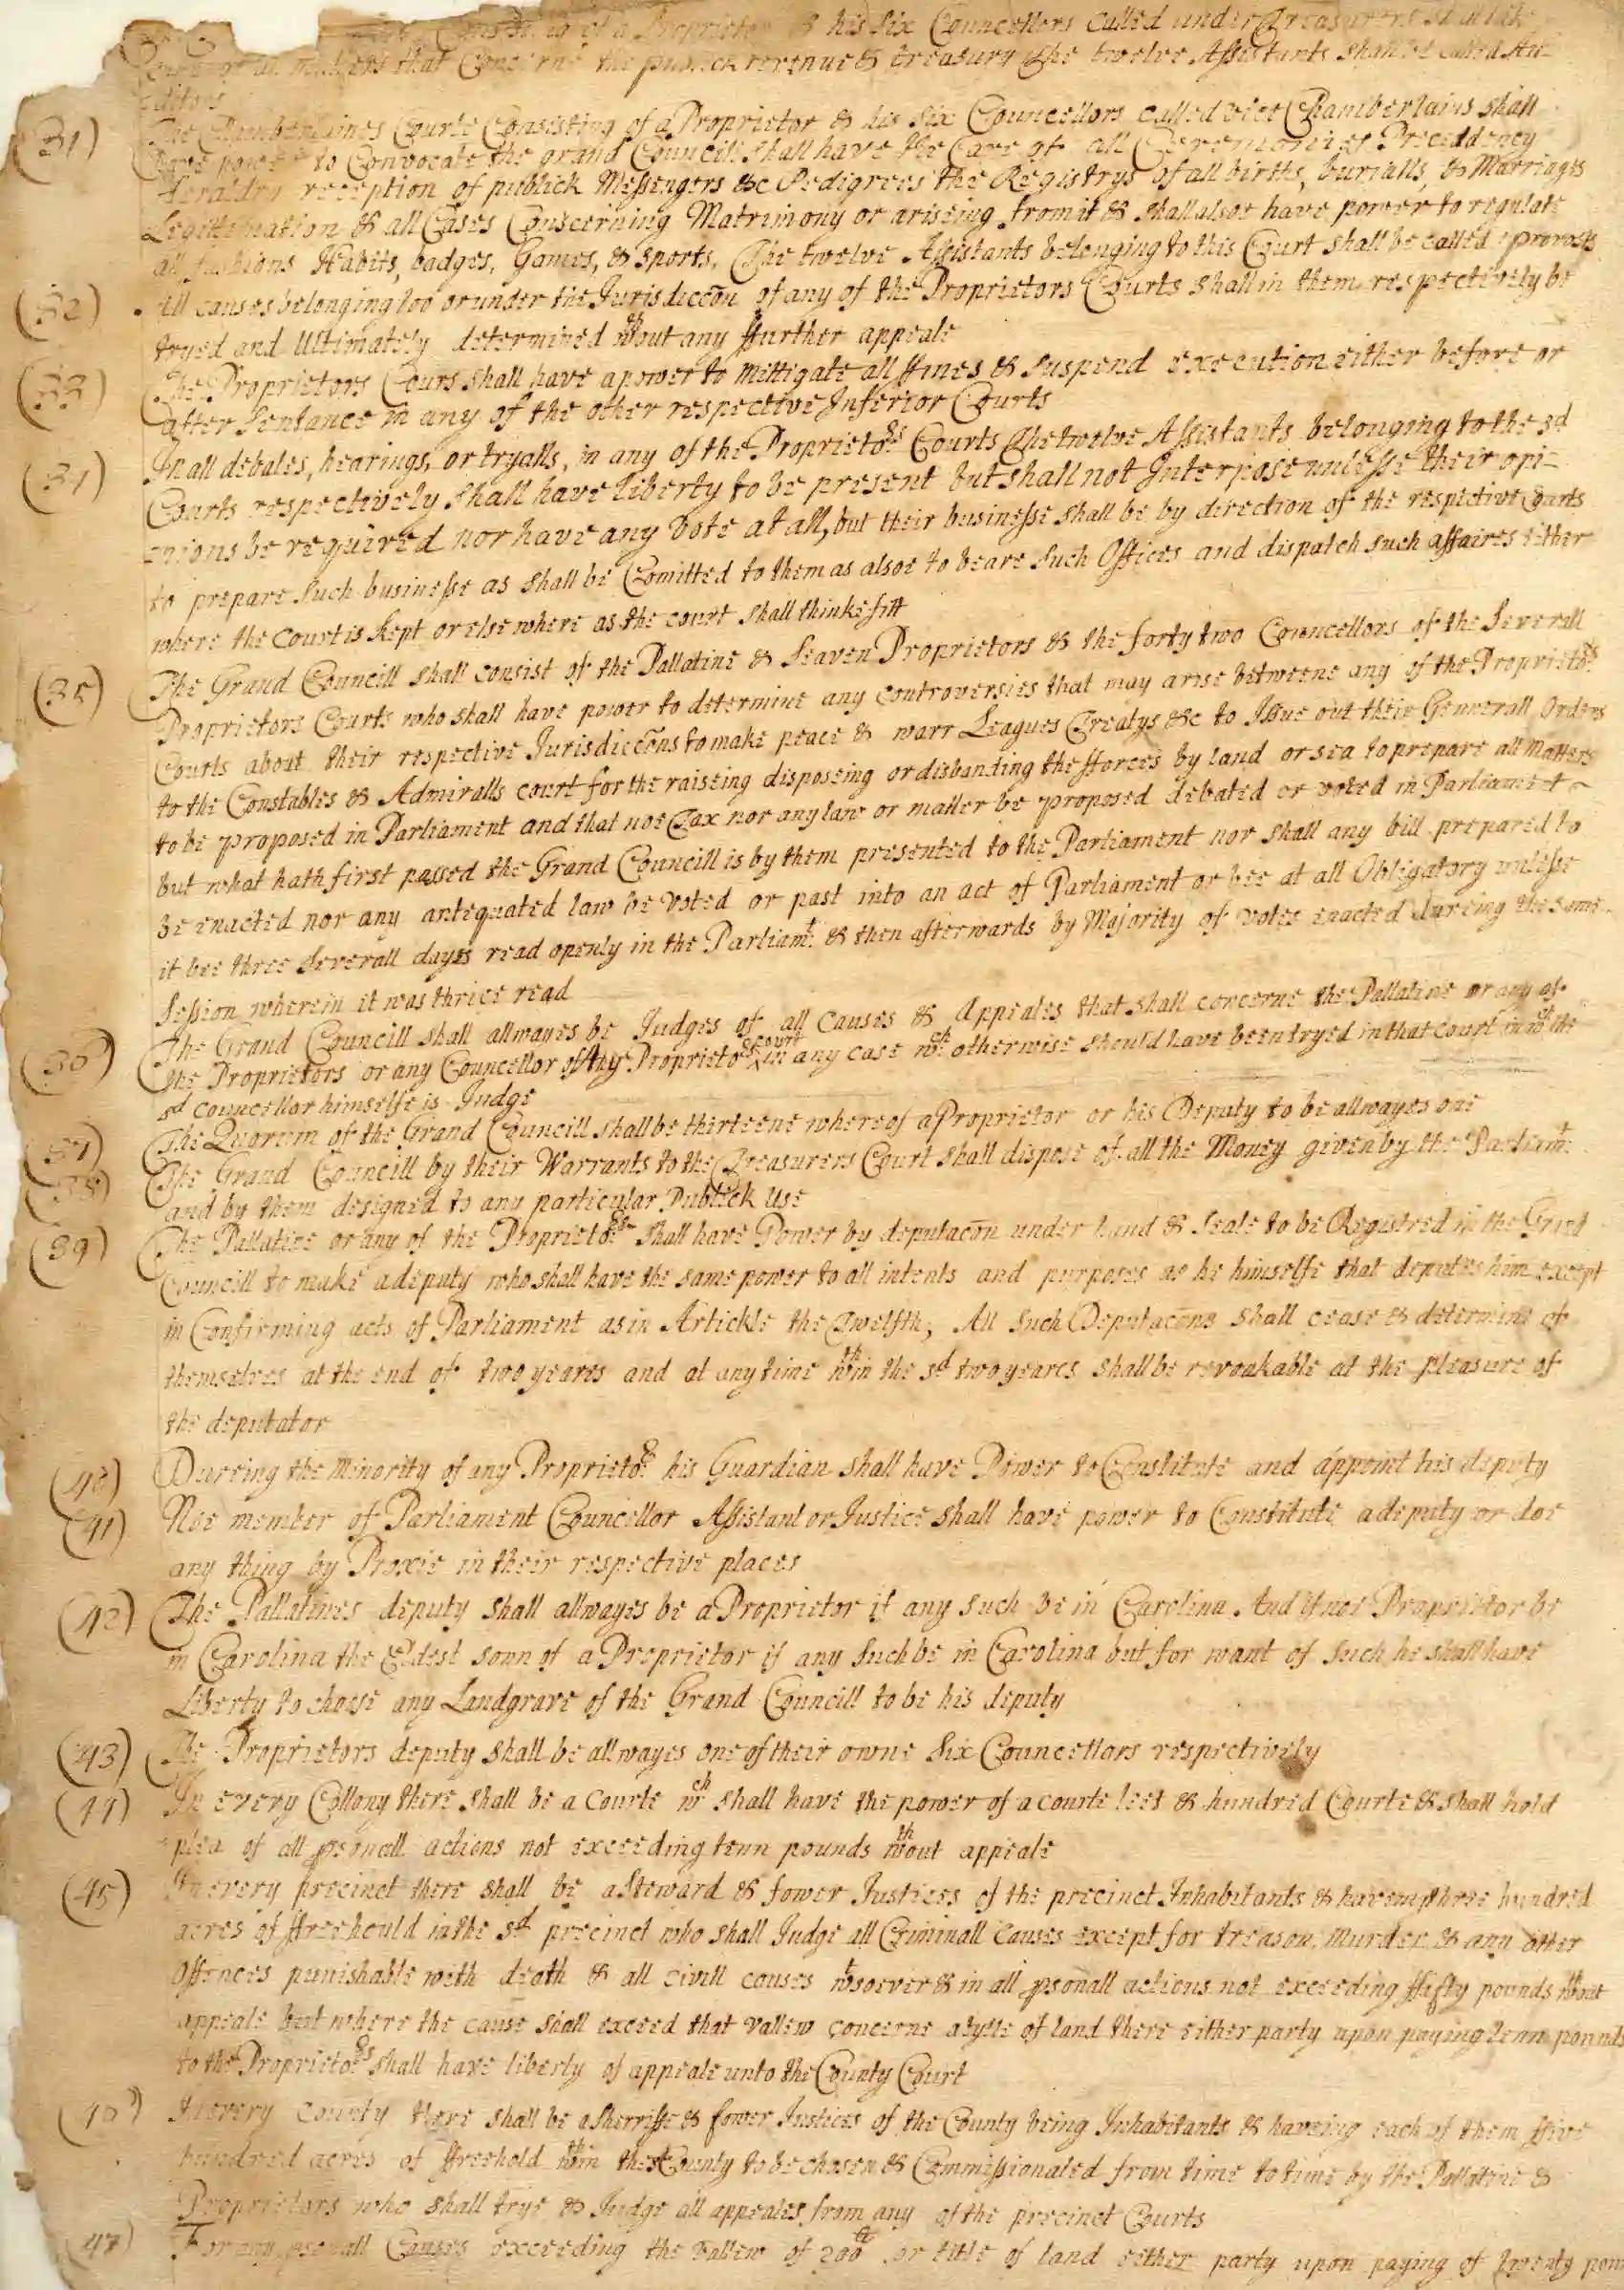 Consisting of a Proprietor & his six Councellors called under Treasurers shall take
care of all matters that Concerne the publick revenue & treasury The twelve Assistants shall be called Au-
ditors
(31) The Chamberlaines Courte Consisting of a Proprietor & his six Councellors called vice Chamberlains shall
have power to Convocate the grand Councill shall have the Care of all Ceremonies Preceddency
Heraldry reception of publick Messengers &c Pedigrees the Registrys of all births, burialls, & Marriages
Legittimation & all Cases Conscerning Matrimony or ariseing from it & shall alsoe have power to regulate
all fashions Habits, badges, Games, & sports. The twelve Assistants belonging to this Court shall be called provosts
(32) All causes belonging too or under the Jurisdiccõn of any of the Proprietors Courts shall in them respectively be
tryed and Ultimately determined wthout any ffurther appeale
(33) The Proprietors Cours shall have a power to mittigate all ffines & suspend execution either before or
after Sentance in any of the other respective Inferior Courts
(34) In all debates, hearings, or tryalls, in any of the Proprietors Courts The twelve Assistants belonging to the sd
Courts respectively shall have liberty to be present but shall not Interpose unlesse their opi-
enions be required nor have any vote at all, but their businesse shall be by direction of the respective Courts
to prepare such businesse as shall be Comitted to them as alsoe to beare such Offices and dispatch such affaires either
where the court is kept or elsewhere as the court shall thinke fitt
(35) The Grand Councill shall consist of the Pallatine & seaven Proprietors & the forty two Councellors of the Severall
Proprietors Courts who shall have power to determine any controversies that may arise betweene any of the Proprietors
Courts about their respective Jurisdiccõns to make peace & warr Leagues Treatys &c to Issue out their Generall Orders
to the Constables & Admiralls court for the raiseing disposeing or disbanding the fforces by land or sea to prepare all matters
to be proposed in Parliament and that noe Tax nor any law or matter be proposed debated or voted in Parliament
but what hath first passed the Grand Councill is by them presented to the Parliament nor shall any bill prepared to
be enacted nor any antequated law be voted or past into an act of Parliament or bee at all Obligatory unlesse
it bee three severall dayes read openly in the Parliamt: & then afterwards by Majority of votes enacted dureing the same
Session wherein it was thrice read
(36) The Grand Councill shall allwayes be Judges of all causes & Appeales that shall concerne the Pallatine or any of
the Proprietors or any Councellor of any Proprietors court in any case wch otherwise should have been tryed in that court in wch the
sd councellor himselfe is Judge
(37) The Quorum of the Grand Councill shall be thirteene whereof a Proprietor or his Deputy to be allwayes one
(38) The Grand Councill by their Warrants to the Treasurers Court shall dispose of all the Money given by the Parliamt:
and by them designed to any particular Publick Use
(39) The Pallatine or any of the Proprietors shall have Power by deputacõn under hand & seale to be Registred in the Grand
Councill to make a deputy who shall have the same power to all intents and purposes as he himselfe that deputes him except
in Confirming acts of Parliament as in Artickle the Twelfth, All such Deputacõns shall cease & determine of
themselves at the end of two yeares and at any time wthin the sd two yeares shall be revoakable at the pleasure of
the deputator
(40) Dureing the Minority of any Proprietor his Guardian shall have Power to Constitute and appoint his deputy
(41) Noe member of Parliament Councellor Assistant or Justice shall have power to Constitute a deputy or doe
any thing by Proxie in their respective places
(42) The Pallatines deputy shall allwayes be a Proprietor if any such be in Carolina And if noe Proprietor be
in Carolina the Eldest sonn of a Proprietor if any such be in Carolina but for want of such he shall have
Liberty to choose any Landgrave of the Grand Councill to be his deputy
(43) The Proprietors deputy shall be allwayes one of their owne six Councellors respectively
(44) In every Collony there shall be a Courte wch shall have the power of a courte leet & hundred Courte & shall hold
plea of all psonall actions not exceeding tenn pounds wthout appeale
(45) In every precinct there shall be a Steward & fower Justices of the precinct Inhabitants & haveing three hundred
acres of ffreehould in the sd precinct who shall Judge all Criminall causes except for treason, Murder & any other
Offences punishable with death & all civill causes wtsoever & in all psonall actions not exceeding ffifty pounds wthout
appeale but where the cause shall exceed that vallew concerne a tytle of land there either party upon paying tenn pounds
to the Proprietors shall have liberty of appeale unto the County Court
(46) In every County there shall be a Sherriffe & fower Justices of the County being Inhabitants & haveing each of them ffive
hundred acres of ffreehold wthin the sd County to be chosen & Commissionated from time to time by the Pallatine &
Proprietors who shall trye & Judge all appeales from any of the precinct Courts
(47) For any psonall Causes exceeding the vallew of 200 or title of land either party upon paying of twenty